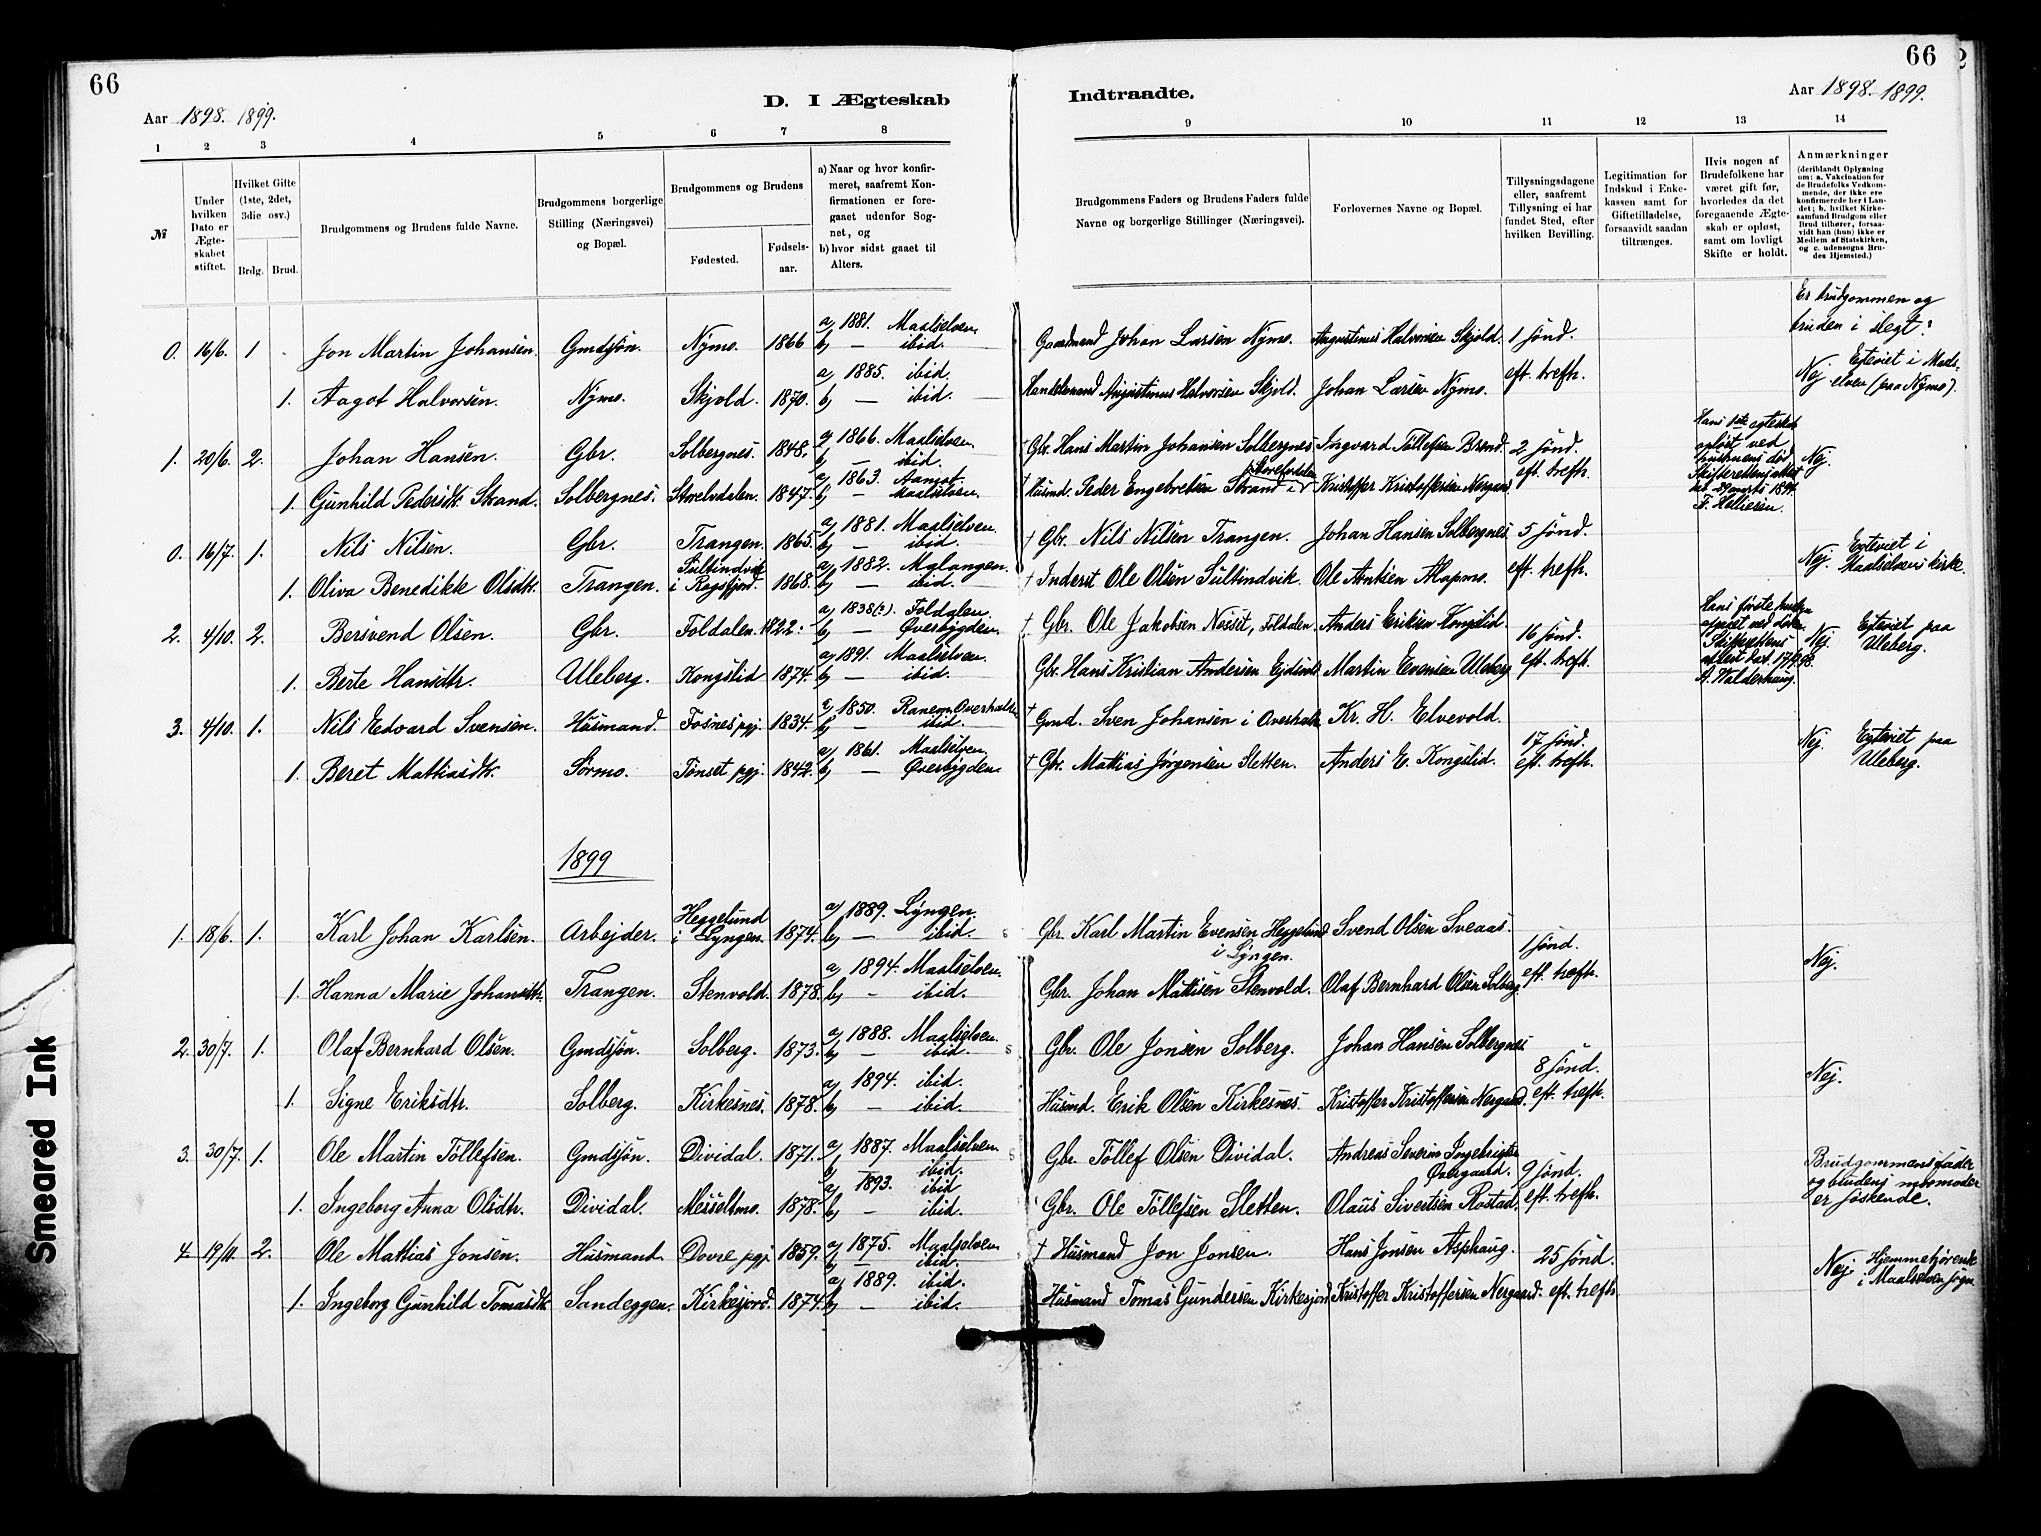 66
66
Aar 1898. 1899.
D. I Ægteskab
Indtraadte.
Aar 1898. 1899.
1 2 3 4 5 6 7 8
9 10 11 12 13 14
№
Under hvilken Dato er Ægteskabet stiftet.
Hvilket Gifte (1ste, 2det, 3die osv.)
Brdg. Brud.
Brudgommens og Brudens fulde Navne.
Brudgommens borgerlige Stilling (Næringsvei) og Bopæl.
Brudgommens og Brudens
Fødested.
Fødselsaar.
a) Naar og hvor konfirmeret, saafremt Konfirmationen er foregaaet udenfor Sognet, og
b) hvor sidst gaaet til Alters.
Brudgommens Faders og Brudens Faders fulde Navne og borgerlige Stillinger (Næringsvei).
Forlovernes Navne og Bopæl.
Tillysningsdagene eller, saafremt Tillysning ei har fundet Sted, efter hvilken Bevilling.
Legitimation for Indskud i Enkekassen samt for Giftetilladelse, forsaavidt saadan tiltrænges.
Hvis nogen af Brudefolkene har været gift før, hvorledes da det foregaaende Ægteskab er opløst, samt om lovligt Skifte er holdt.
Anmærkninger
(deriblandt Oplysning om: a. Vakcination for de Brudefolks Vedkommende, der ikke ere konfirmerede her i Landet; b. hvilket Kirkesamfund Brudgom eller Brud tilhører, forsaavidt han (hun) ikke er Medlem af Statskirken, og c. udensogns Brudes Hjemsted.)
Er brudgommen og bruden i slegt?
0. 16/6. 1 Jon Martin Johansen. Gmdsøn. Nymo. 1866 a) 1881. Maalselven. b) — ibid. Gaardmand Johan Larsen Nymo. Augustinus Halvorsen Skjold. 1 sønd.
1. Aagot Halvorsen. Nymo. Skjold. 1870. a) 1885. ibid. b) — ibid. Handelsmand Augustinus Halvorsen Skjold. Johan Larsen Nymo. eft. trefh. Nej Egteviet i Maalselven (paa Nymo).
1. 20/6. 2. Johan Hansen. Gbr. Solbergnes. 1848. a) 1866. Maalselven b) — ibid. † Gbr. Hans Martin Johansen Solbergnes Ingvard Tollefsen Brend. 2 sønd. Hans 1ste egteskab opløst ved Nej.
1. Gunhild Pedersdtr. Strand. Solbergnes. Storelvdalen. 1847. a) 1863. Aamot. b) — Maalselven. † Husmd. Peder Engebretsen Strand i Storelvdalen Kristoffer Kristoffersen Nergaard eft. trefh.
0. 16/7. 1. Nils Nilsen. Gbr. Trangen. 1865. a) 1881. Maalselven. b) — ibid. † Gbr. Nils Nilsen Trangen. Johan Hansen Solbergnes. 5 sønd.
1. Oliva Benedikke Olsdtr. Trangen. Sultindvik i Rossfjord. 1868. a) 1882. Malangen. b) — ibid. † Inderst Ole Olsen Sultindvik. Ole Antsen Alapmo. eft. trefh. Nej. Egteviet i Maalselvens kirke.
2. 4/10. 2. Bersvend Olsen. Gbr. Foldalen. 1822. a) 1838(?). Foldalen b) — Øverbygden. † Gbr. Ole Jakobsen Foldalen. Anders Eriksen Kongslid. 16 sønd.
1. Berte Hansdtr. Uleberg. Kongslid 1874. a) 1891. Maalselven. b) — ibid. Gbr. Hans Kristian Andersen Martin Evensen Uleberg eft. trefh. Nej. Egteviet paa Uleberg.
3. 4/10. 1. Nils Edvard Svensen. Husmand. Fosnes pgj. 1834. a) 1850. Ranem Overhalla b) — ibid. † Gmd. Sven Johansen i Overhalla Kr. H. Elvevold.
1. Beret Mattiasdtr. Sørmo. Tønset pgj. 1842. a) 1861. Maalselven. b) — Øverbygden. † Gbr. Mattias Jørgensen Sletten. Anders E. Kongslid. 17 sønd. eft. trefh. Nej. Egteviet paa Uleberg.
1899
1. 18/6. 1. Karl Johan Karlsen. Arbejder. Heggelund i Lyngen. 1874. a) 1889. Lyngen. b) — ibid. Gbr. Karl Martin Evensen Heggelund i Lyngen. Svend Olsen Sveaas.
1. Hanna Marie Johansdtr. Trangen. Stenvold. 1878. a) 1894. Maalselven. b) — ibid. Gbr. Johan Mattisen Stenvold. Olaf Bernhard Olsen Solberg. 1 sønd. eft. trefh. Nej.
2. 30/7. 1. Olaf Bernhard Olsen. Gmdsøn. Solberg. 1873. a) 1888. Maalselven. b) — ibid. Gbr. Ole Jonsen Solberg. Johan Hansen Solbergnes.
1. Signe Eriksdtr. Solberg. Kirkesnes. 1878. a) 1894. ibid. b) — ibid. Husmd. Erik Olsen Kirkesnes. Kristoffer Kristoffersen Nergaard. 8 sønd. eft. trefh. Nej.
3. 30/7. 1. Ole Martin Tollefsen. Gmdsøn. Dividal. 1871. a) 1887. Maalselven. b) — ibid. Gbr. Tollef Olsen Dividal. Andreas Severin Ingebrigtsen Øvergaard. 9 sønd.
1. Ingeborg Anna Olsdtr. Dividal. Messeltmo. 1878. a) 1893. ibid b) — ibid. Gbr. Ole Tollefsen Sletten. Olaus Sivertsen Rostad. eft. trefh. Brudgommens fader og brudens mormoder er søskende.
4. 19/11. 2. Ole Mattias Jonsen. Husmand. Dovre pgj. 1859. a) 1875. Maalselven. b) — ibid. † Husmand Jon Jonsen. Hans Jonsen Asphaug. 25 sønd.
1. Ingeborg Gunhild Tomasdtr. Sandeggen. Kirkesjord. 1874. a) 1889. ibid. b) — ibid. Husmand Tomas Gundersen Kirkesjord Kristoffer Kristoffersen Nergaard. eft. trefh. Nej. Hjemmehørende i Maalselven sogn
Smeared Ink